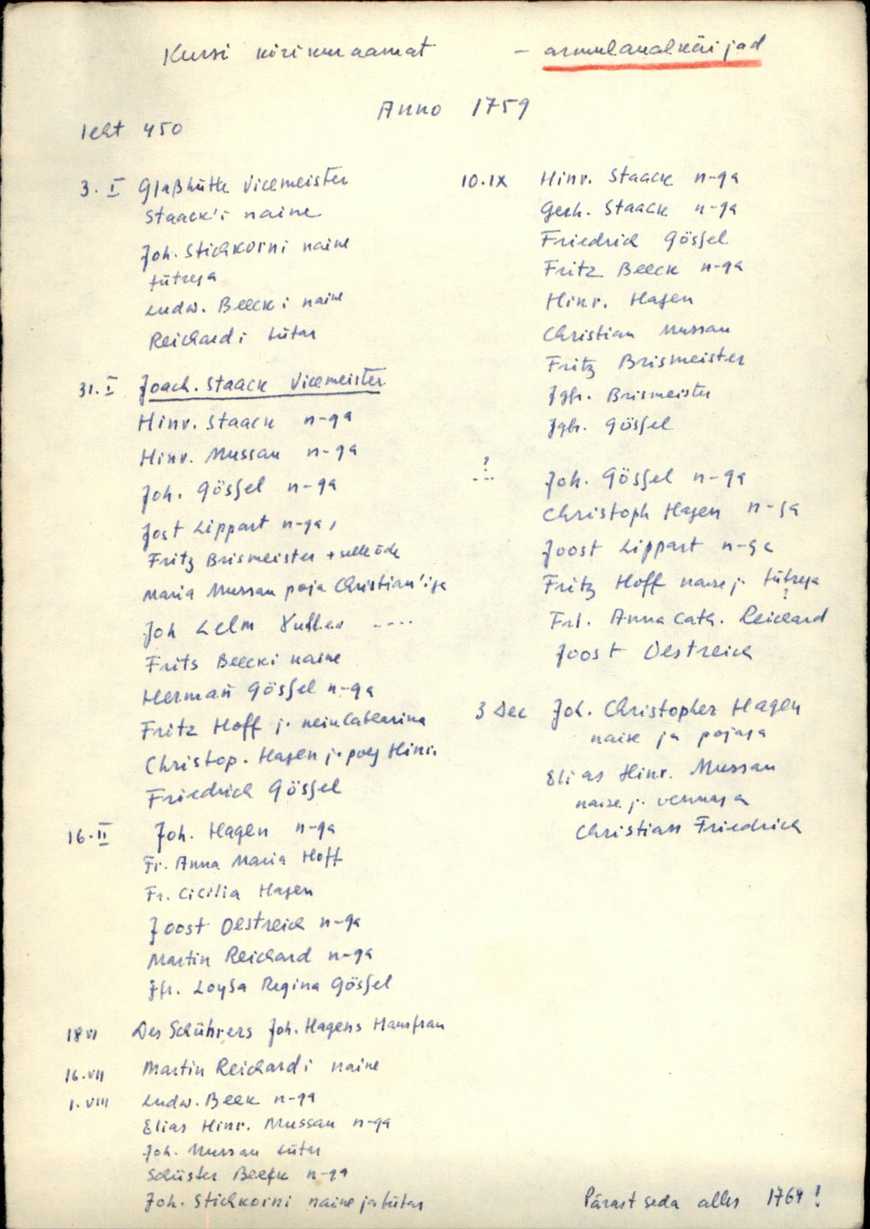 Kursi kirikuraamat – armulaualkäijad
Anno 1759
leht 450
3. I Glaßhütte Vicemeister
Staack'i naine
Joh. Stichkorni naine
tütrega
Ludw. Beecki naine
Reichardi tütar
31. I Joach. Staack Vicemeister
Hinr. Staack n-ga
Hinr. Mussau n-ga
Joh. Gössel n-ga
Jost Lippart n-ga,
Fritz Brismeister +
Maria Mussau poja Christian'iga
Joh ....
Frits Beecki naine
Herman̄ Gössel n-ga
Fritz Hoff j.
Christop. Hagen j. poeg Hinr.
Friedrich Gössel
16. II Joh. Hagen n-ga
Fr. Anna Maria Hoff
Fr. Cicilia Hagen
Joost Oestreich n-ga
Martin Reichard n-ga
Jfr. Loysa Regina Gössel
18 VI Des Schührers Joh. Hagens Hausfrau
16. VII Martin Reichardi naine
1. VIII Ludw. Beek n-ga
Elias Hinr. Mussau n-ga
Joh. Mussau tütar
Schüster Beeck n-ga
Joh. Stichkorni naine ja tütar
10. IX Hinr. Staack n-ga
Gerh. Staack n-ga
Friedrich Gössel
Fritz Beeck n-ga
Hinr. Hagen
Christian Mussau
Fritz Brismeister
Jgfr. Brismeister
Jgfr. Gössel
? Joh. Gössel n-ga
Christoph Hagen n-ga
Joost Lippart n-ga
Fritz Hoff naise j. tütrega
?
Frl. Anna Cath. Reichard
Joost Oestreich
3 Dec Joh. Christopher Hagen
naise ja pojaga
Elias Hinr. Mussau
naise j. vennaga
Christian Friedrich
Pärast seda alles 1764!